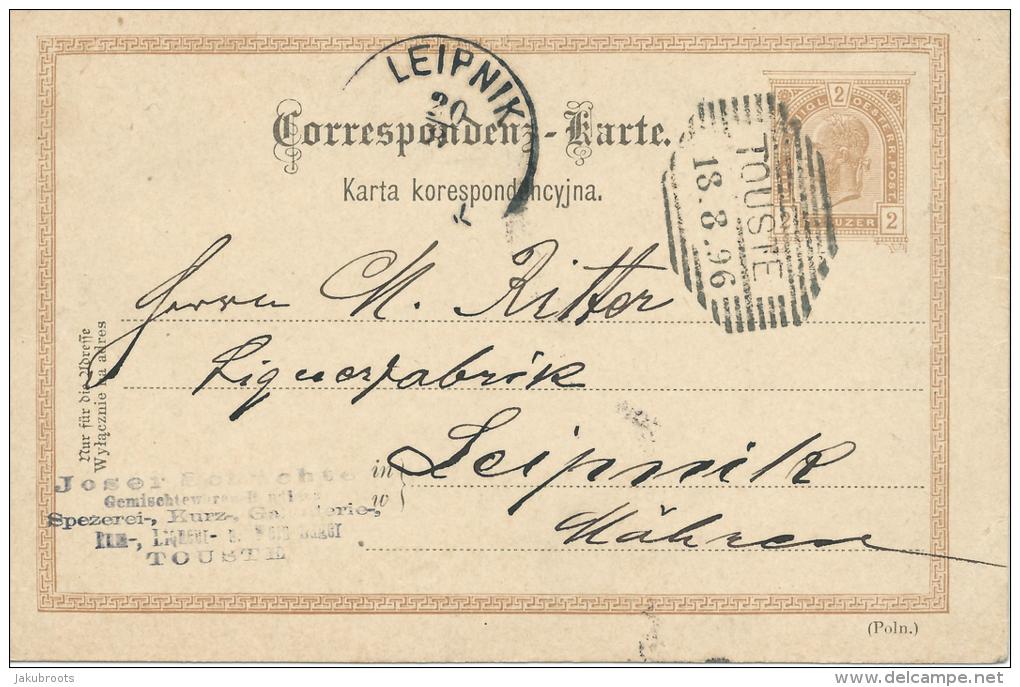 LEIPNIK
20
Correspondenz-Karte.
Karta korespondencyjna.
2
KAIS. KÖNIGL. OESTERR. POST.
2 KREUZER 2
TOUSTE
18.8.96
Herrn M. Ritter
Liquerfabrik
in Leipnik
w
Mähren
Nur für die Adresse
Wyłącznie na adres
Josef
Gemischtewaren-
Spezerei-, Kurz-, Galanterie-,
Rum-, Liqueur-
TOUSTE
(Poln.)
Jakubroots